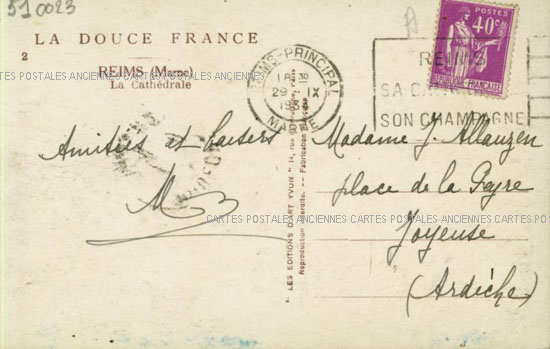 51 0023
LA DOUCE FRANCE
2
REIMS (Marne)
La Cathédrale
REIMS-PRINCIPAL
18 30
29 IX
MARNE
POSTES
40c
REPUBLIQUE-FRANÇAISE
REIMS
SA
SON CHAMPAGNE
CARTES POSTALES ANCIENNES CARTES POSTALES ANCIENNES CARTES POSTALES ANCIENNES CARTES POSTALES
Amitiés et baisers
M
"LES EDITIONS D'ART YVON" 14, rue
Reproduction interdite. -- Fabrication
Madame J. Allauzen
place de la Gayre
Joyeuse
(Ardèche)
CARTES POSTALES ANCIENNES CARTES POSTALES ANCIENNES CARTES POSTALES